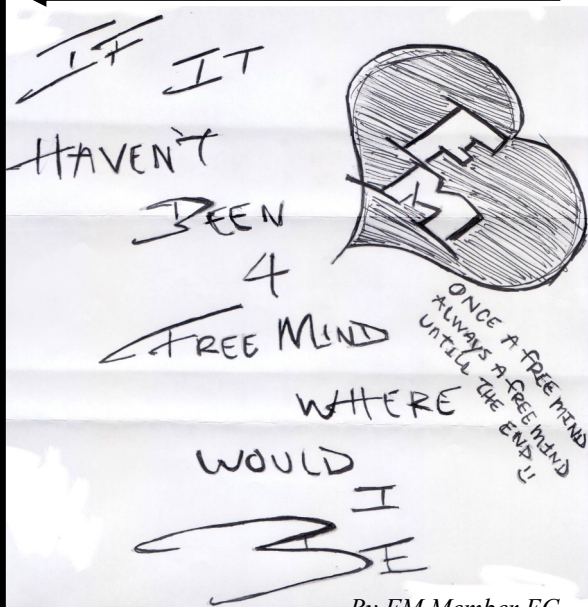 IF IT
HAVEN'T
BEEN
4
FREE MIND
WHERE
WOULD
I
BE
FM
ONCE A FREE MIND
ALWAYS A FREE MIND
UNTILL THE END
By FM Member EG